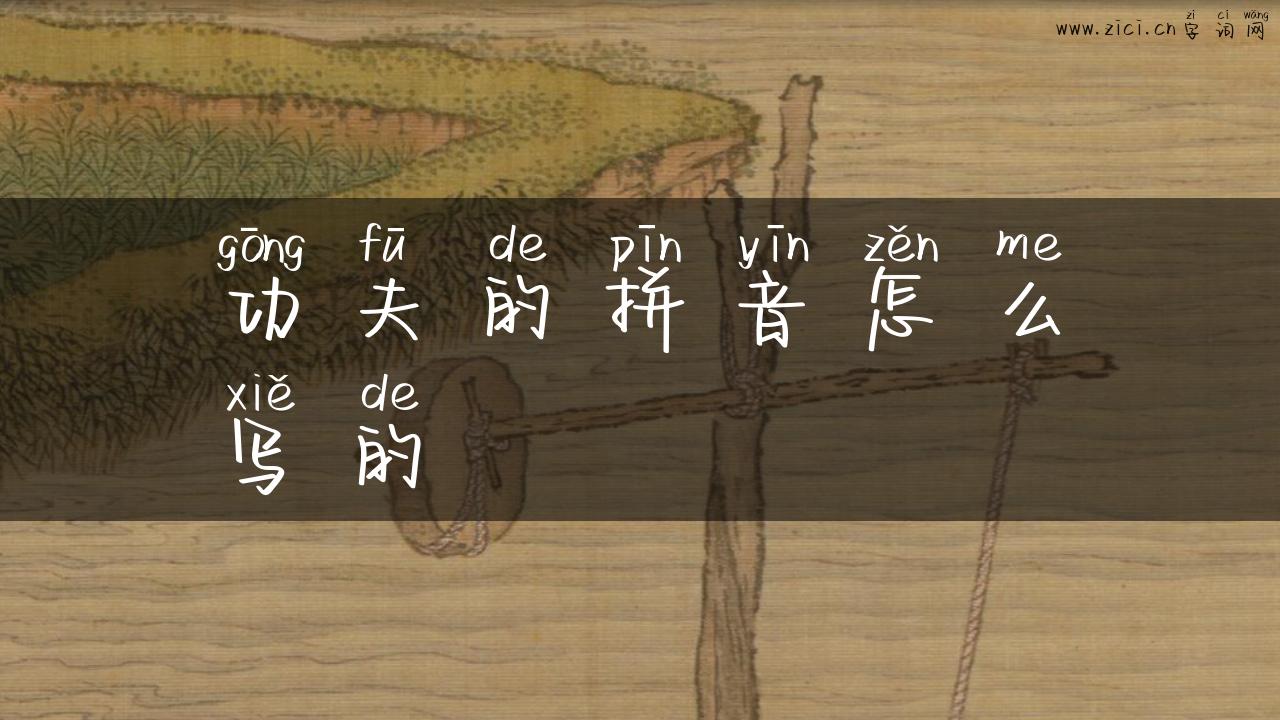 zì cí wǎng
www.zici.cn 字词网
gōng fū de pīn yīn zěn me
功夫的拼音怎么
xiě de
写的